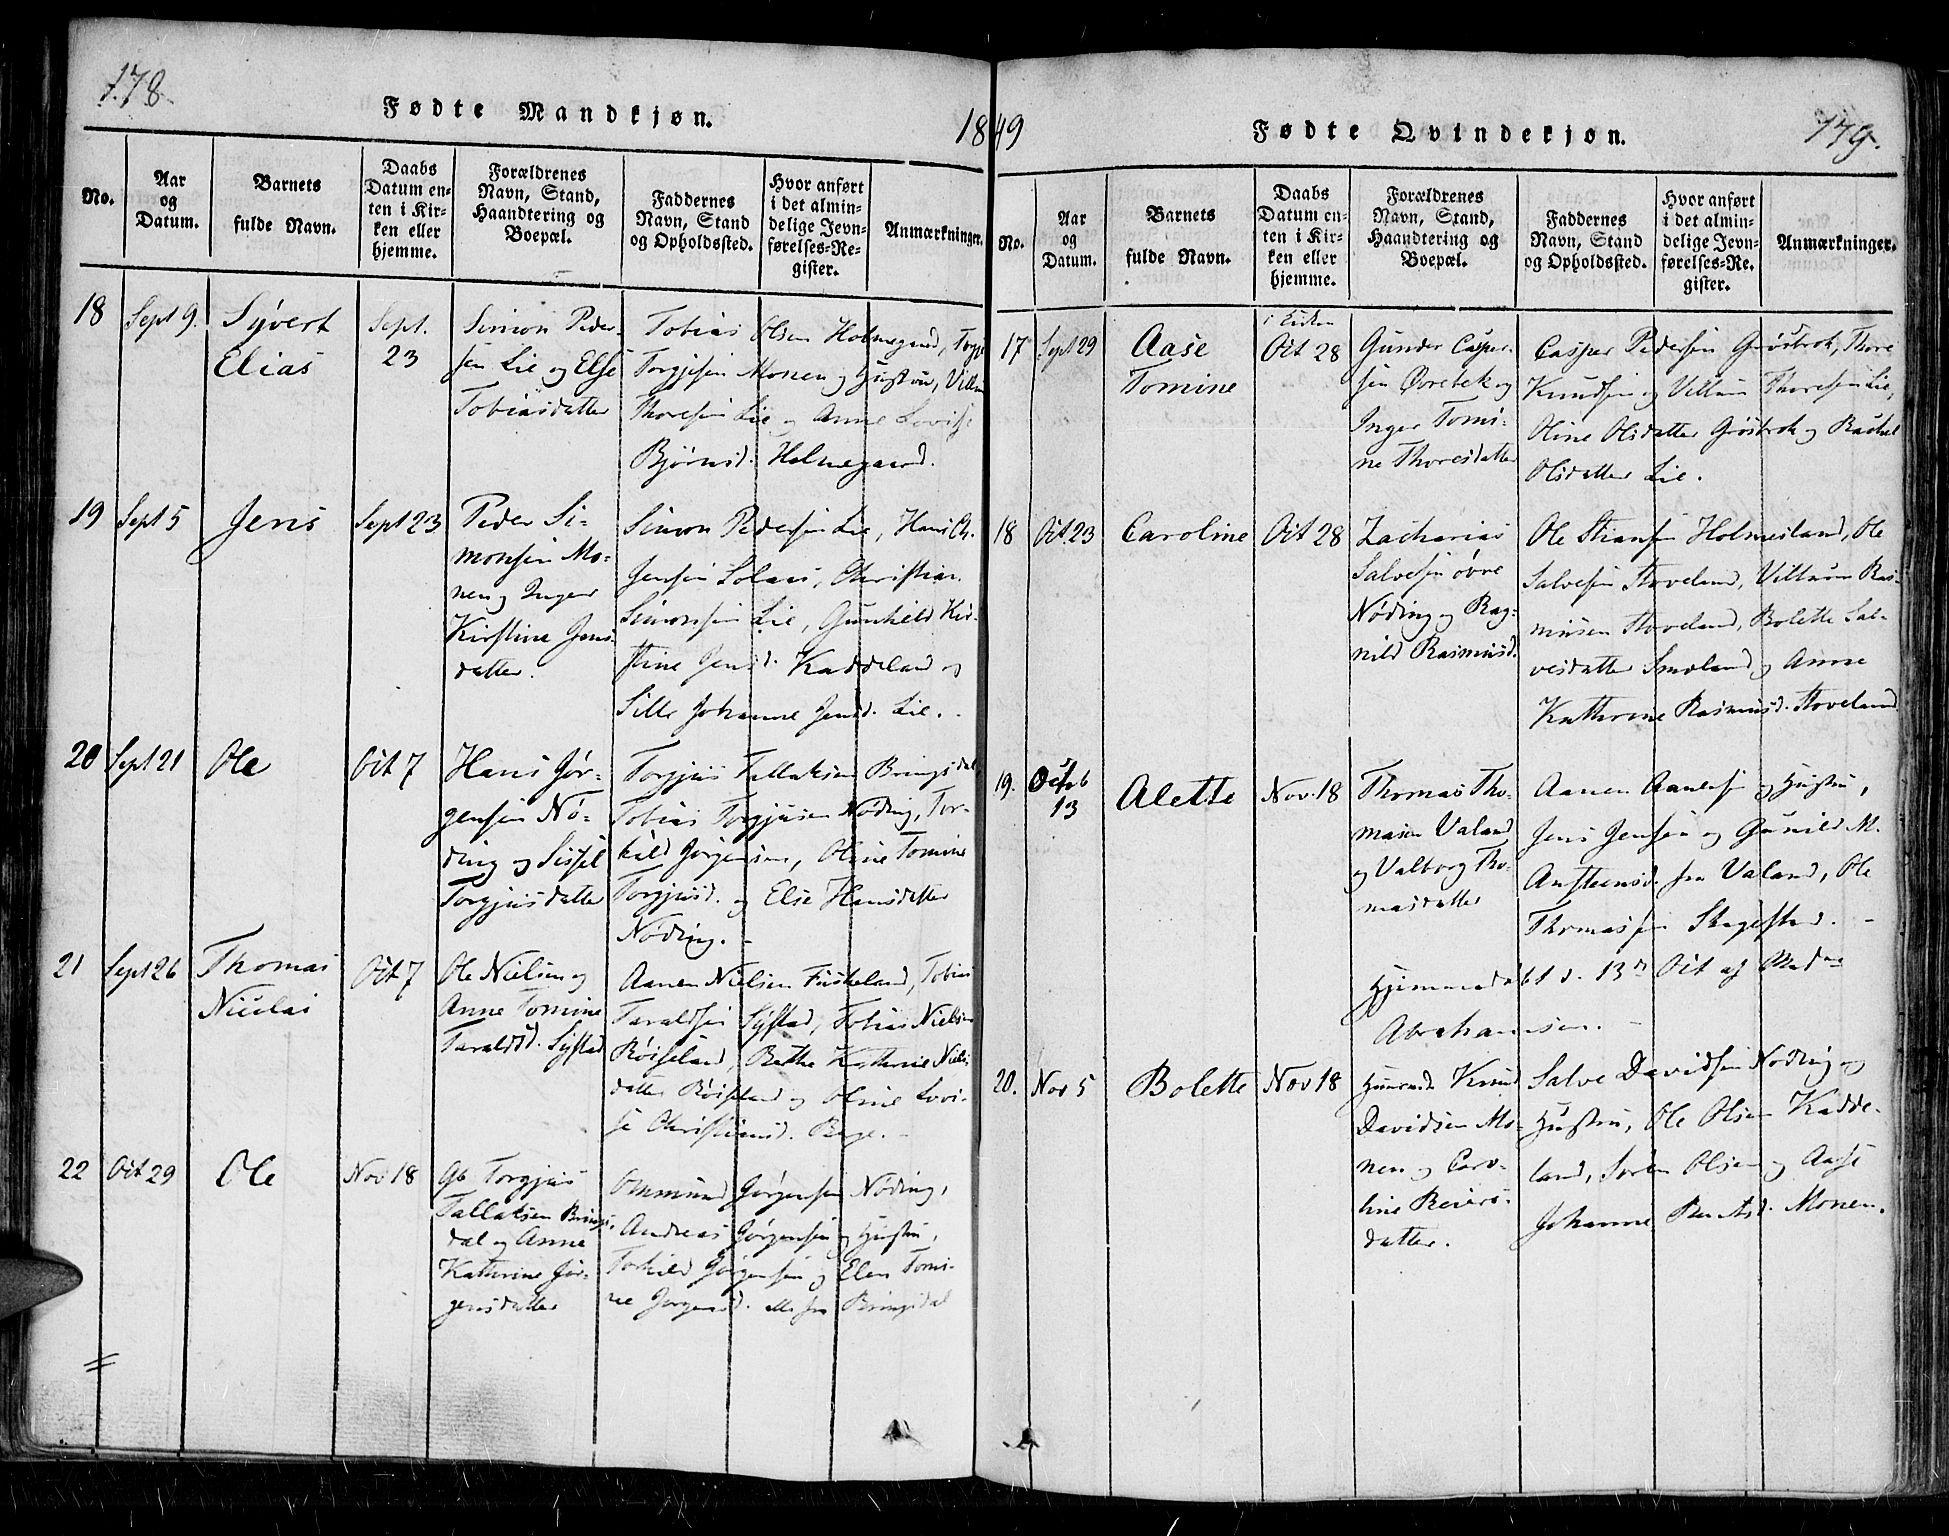 178.
Fødte Mandkjøn.
1849
No.
Aar og Datum.
Barnets fulde Navn.
Daabs Datum enten i Kirken eller hjemme.
Forældrenes Navn, Stand, Haandtering og Boepæl.
Faddernes Navn, Stand og Opholdssted.
Hvor anført i det almindelige Jevnførelses-Register.
Anmærkninger.
18
Sept 9.
Syvert
Elias
Sept.
23
Simon Peder-
sen Lie og Else
Tobiasdatter
Tobias Olsen Holmegaard,
Torgjusen Monen og Hustru, Villum
Thoresen Lie og Anne Lovise
Bjørnsd. Holmegaard.
19
Sept 5
Jens
Sept 23
Peder Si-
monsen Mo-
nen og Inger
Kirstine Jens-
datter.
Simon Pedersen Lie, Hans Ch.
Jensen Solaas, Christian
Simonsen Lie, Gunhild Kir-
stine Jensd. Kaddeland og
Sille Johanne Jensd. Lie.
20
Sept 21
Ole
Oct 7
Hans Jør-
gensen Nø-
ding og Sissel
Torgjusdatter
Torgjus Tallaksen Bringsdal
Tobias Torgjusen Nøding, Tor-
kild Jørgensen, Oline Tomine
Torgjusd. og Else Hansdatter
Nøding. -
21
Sept 26
Thomas
Nicolai
Oct 7
Ole Nielsen og
Anne Tomine
Taraldsd. Systad
Aanen Nielsen Fuskeland, Tobias
Taraldsen Systad, Tobias Nielsen
Røiseland, Berthe Kathrine Niels-
datter Røiseland og Oline Lovi-
se Christiansd. Berge. -
22
Oct 29
Ole
Nov 18
Gb Torgjus
Tallaksen Brings-
dal og Anne
Kathrine Jør-
gensdatter
Ommund Jørgensen Nøding,
Andreas Jørgensen og Hustru,
Torkild Jørgensen og Elen Tomi-
ne Jørgensd. alle fra Bringsdal
179.
Fødte Qvindekjøn.
No.
Aar og Datum.
Barnets fulde Navn.
Daabs Datum enten i Kirken eller hjemme.
Forældrenes Navn, Stand, Haandtering og Boepæl.
Faddernes Navn, Stand og Opholdssted.
Hvor anført i det almindelige Jevnførelses-Register.
Anmærkninger.
17
Sept 29
Aase
Tomine
i Kirken
Oct 28
Gunder Casper-
sen Øvrebek og
Inger Tomi-
ne Thoresdatter
Casper Pedersen Grøsbrok, Thore
Knudsen og Villum Thoresen Lie,
Oline Olsdatter Grøsbrok og Rachel
Olsdatter Lie.
18
Oct 23
Caroline
Oct 28
Zacharias
Salvesen øvre
Nøding og Rag-
nild Rasmusd.
Ole Stiansen Holmesland, Ole
Salvesen Stoveland, Villum Ras-
musen Stoveland, Bolette Sal-
vesdatter Smøland og Anne
Kathrine Rasmusd. Stoveland
19.
13
Alette
Nov. 18
Thomas Tho-
masen Valand
og Valborg Tho-
masdatter
Aanen Aanesen og Hustru,
Jens Jensen og Gunild M.
Anstensd. fra Valand, Ole
Thomassen Skagestad. -
Hjemmedøbt d. 13de Oct af Mad.
Abrahamsen. -
20.
Nov 5
Bolette
Nov 18
Huusmd. Knud
Davidsen Mo-
nen og Caro-
line Reiers-
datter.
Salve Davidsen Nøding og
Hustru, Ole Olsen Kadde-
land, Søren Olsen og Aase
Johanne Berntsd. Monen.